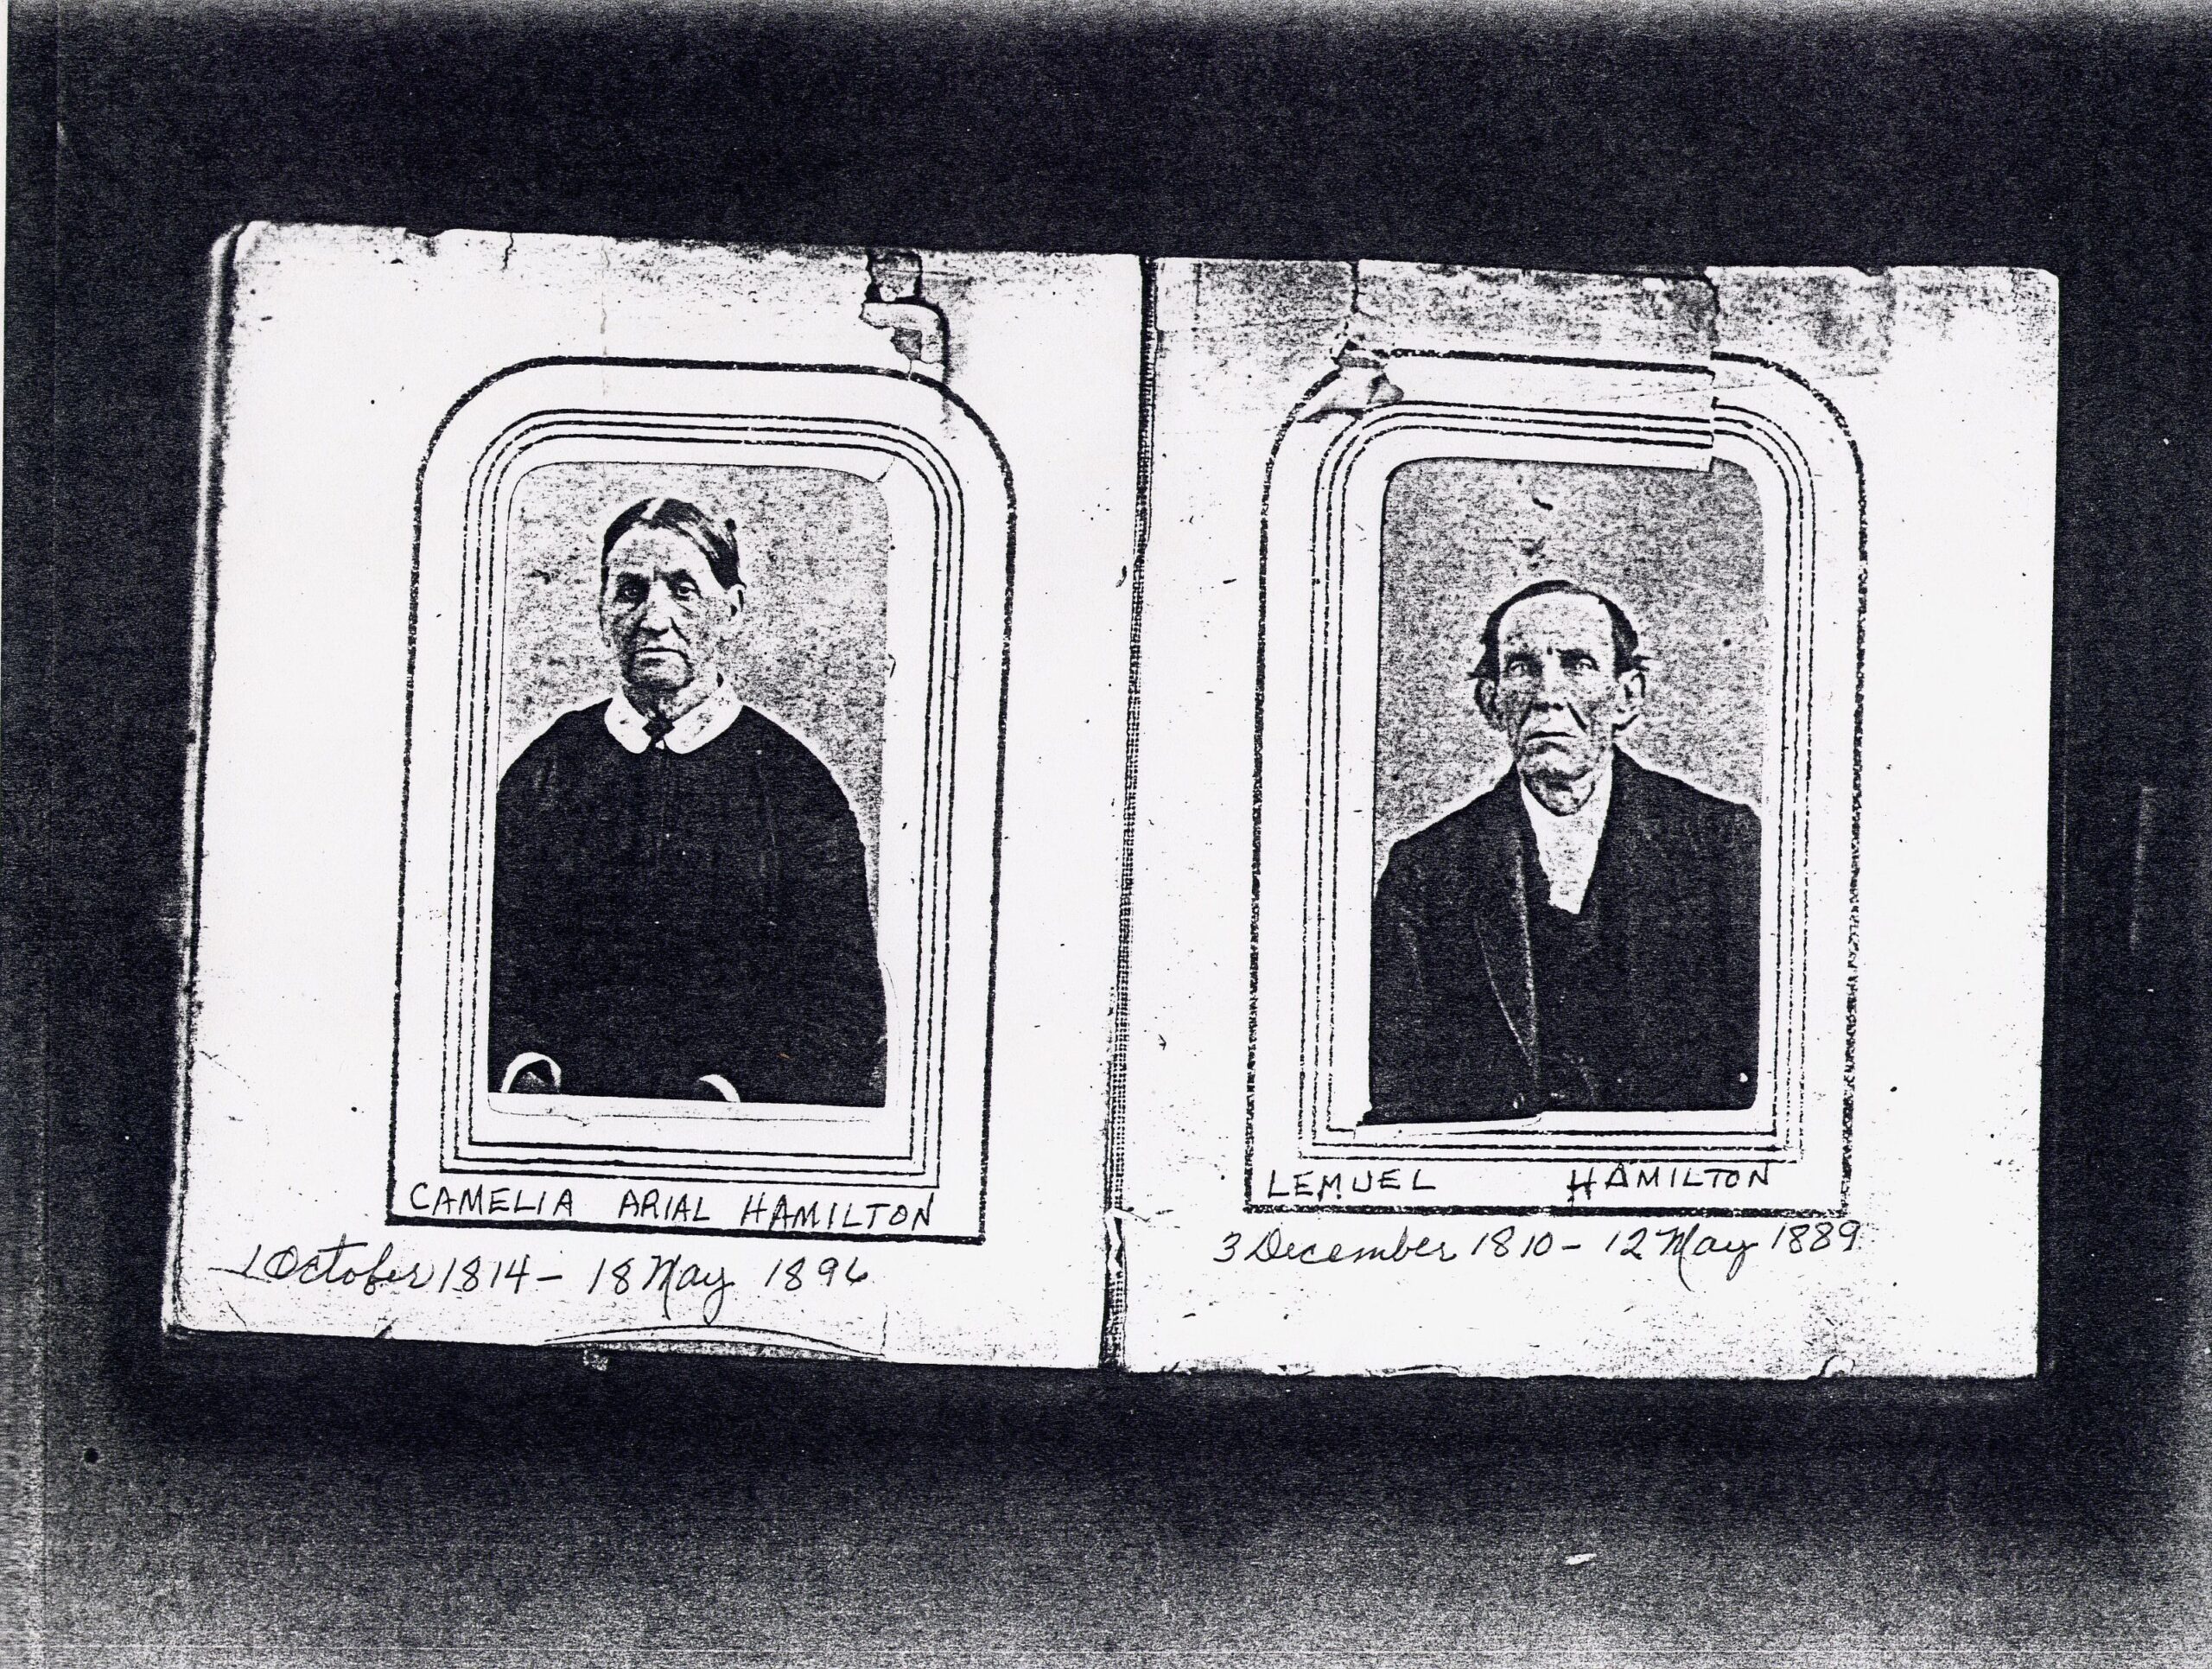 CAMELIA ARIAL HAMILTON
1 October 1814 - 18 May 1896
LEMUEL HAMILTON
3 December 1810 - 12 May 1889